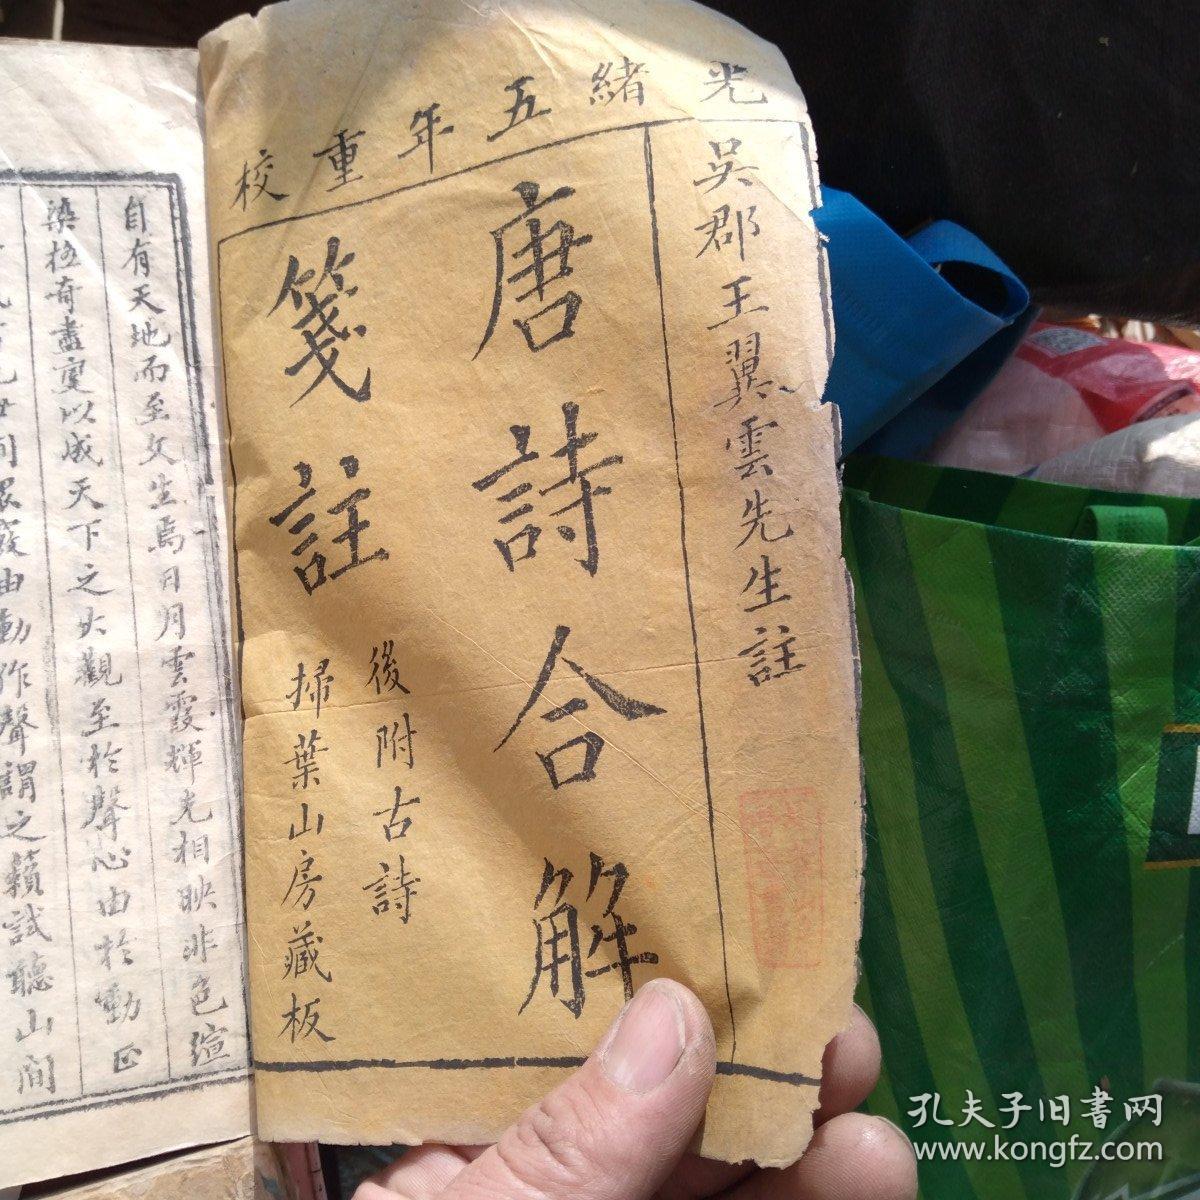 光緒五年重校
吳郡王翼雲先生註
唐詩合解
箋註
後附古詩
掃葉山房藏板
自有天地而至文生焉日月雲霞輝光相映非色絢
染極奇盡變以成天下之大觀至於聲心由於動
動作聲謂之籟試聽山間
孔夫子旧书网
www.kongfz.com